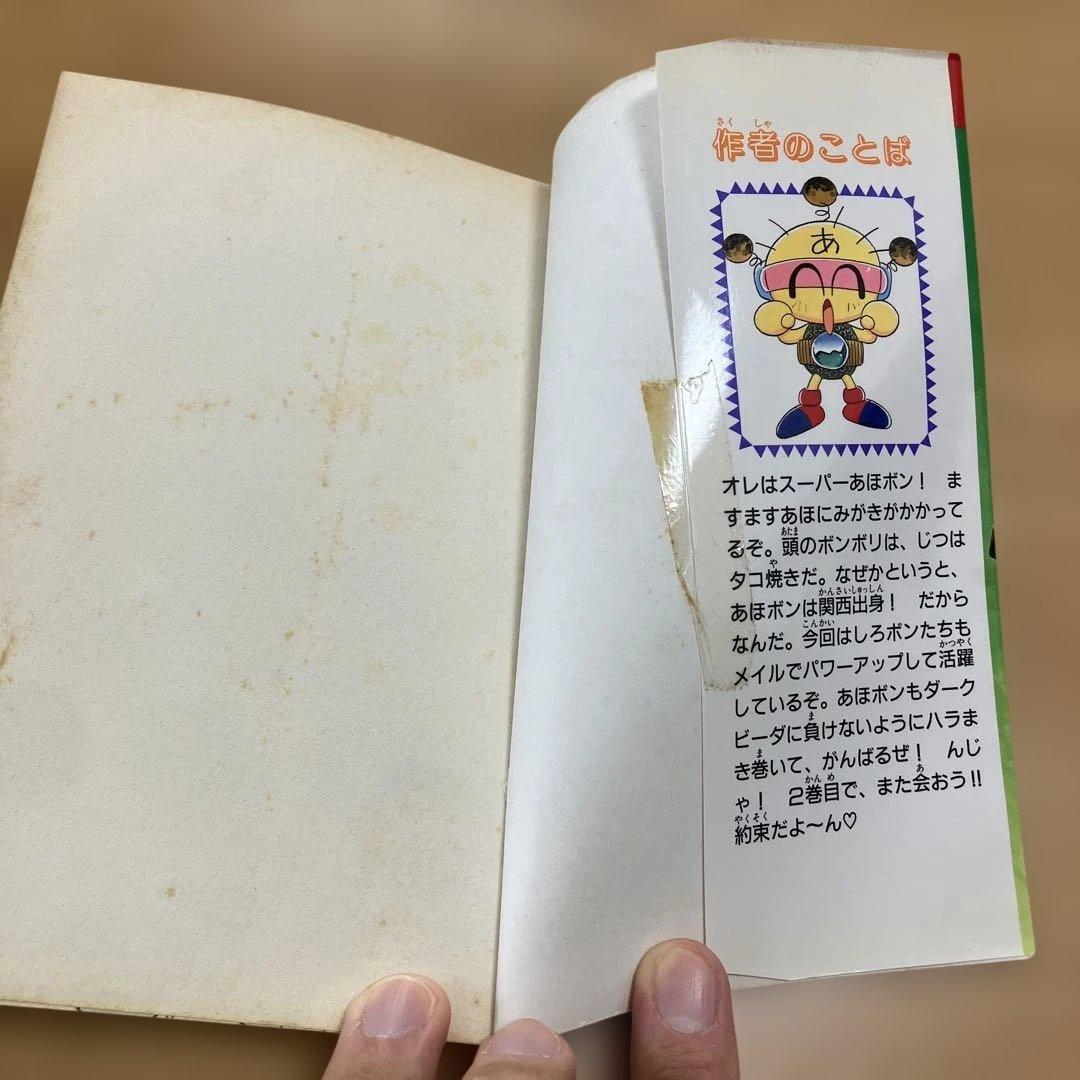 作者のことば
あ
オレはスーパーあほボン！　ま
すますあほにみがきがかかって
るぞ。頭のボンボリは、じつは
タコ焼きだ。なぜかというと、
あほボンは関西出身！　だから
なんだ。今回はしろボンたちも
メイルでパワーアップして活躍
しているぞ。あほボンもダーク
ビーダに負けないようにハラま
き巻いて、がんばるぜ！　んじ
ゃ！　2巻目で、また会おう!!
約束だよ〜ん♡